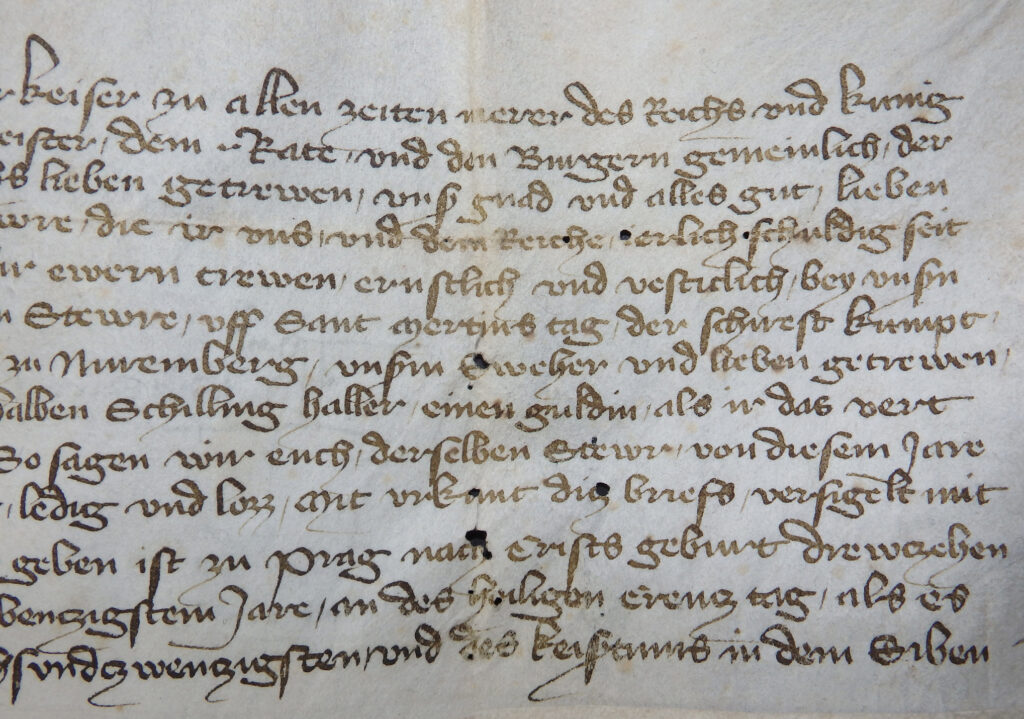 keiser zu allen zeiten merer des Reichs vnd kunig
eister, dem Rate, vnd den Burgern gemeinlich, der
s lieben getrewen, vnsʼ gnad vnd alles gut, lieben
wre, die ir vns, vnd dem Reiche, ierlich schuldig seit
ir ewern trewen, ernstlich vnd vesticlich, bey vnsʼn
n Stewre, vff Sant Mertins tag, der schirest kumpt,
zu Nuremberg, vnsʼm Sweher vnd lieben getrewen,
halben Schilling haller, einen guldin, als ir das vert
So sagen wir euch, derselben Stewr, von diesem Jare
, ledig vnd lozz, Mit vrkunt dicz briefs, versigelt mit
geben ist zu Prag nach Crists geburt drewczehen
benczigstem Jare, an des heiligen Creucz tag, als es
hsvndczwenczigsten, vnd des keisʼtums in dem Siben